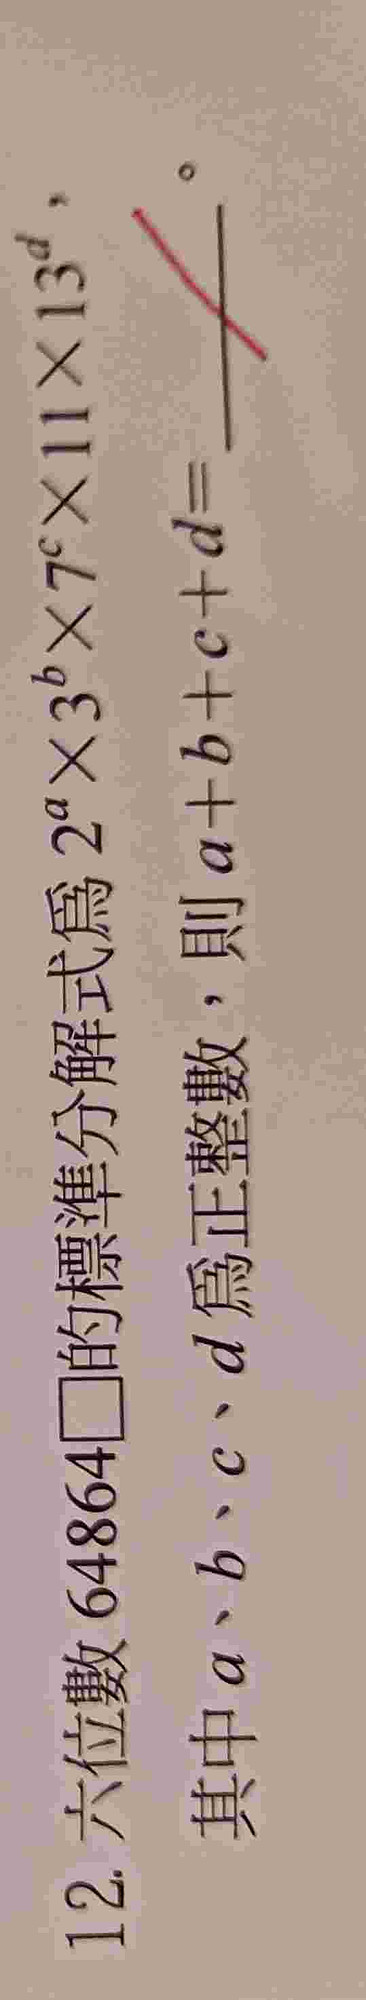 12. 六位數 64864□的標準分解式爲 2^a×3^b×7^c×11×13^d，
其中 a、b、c、d 爲正整數，則 a+b+c+d=______。